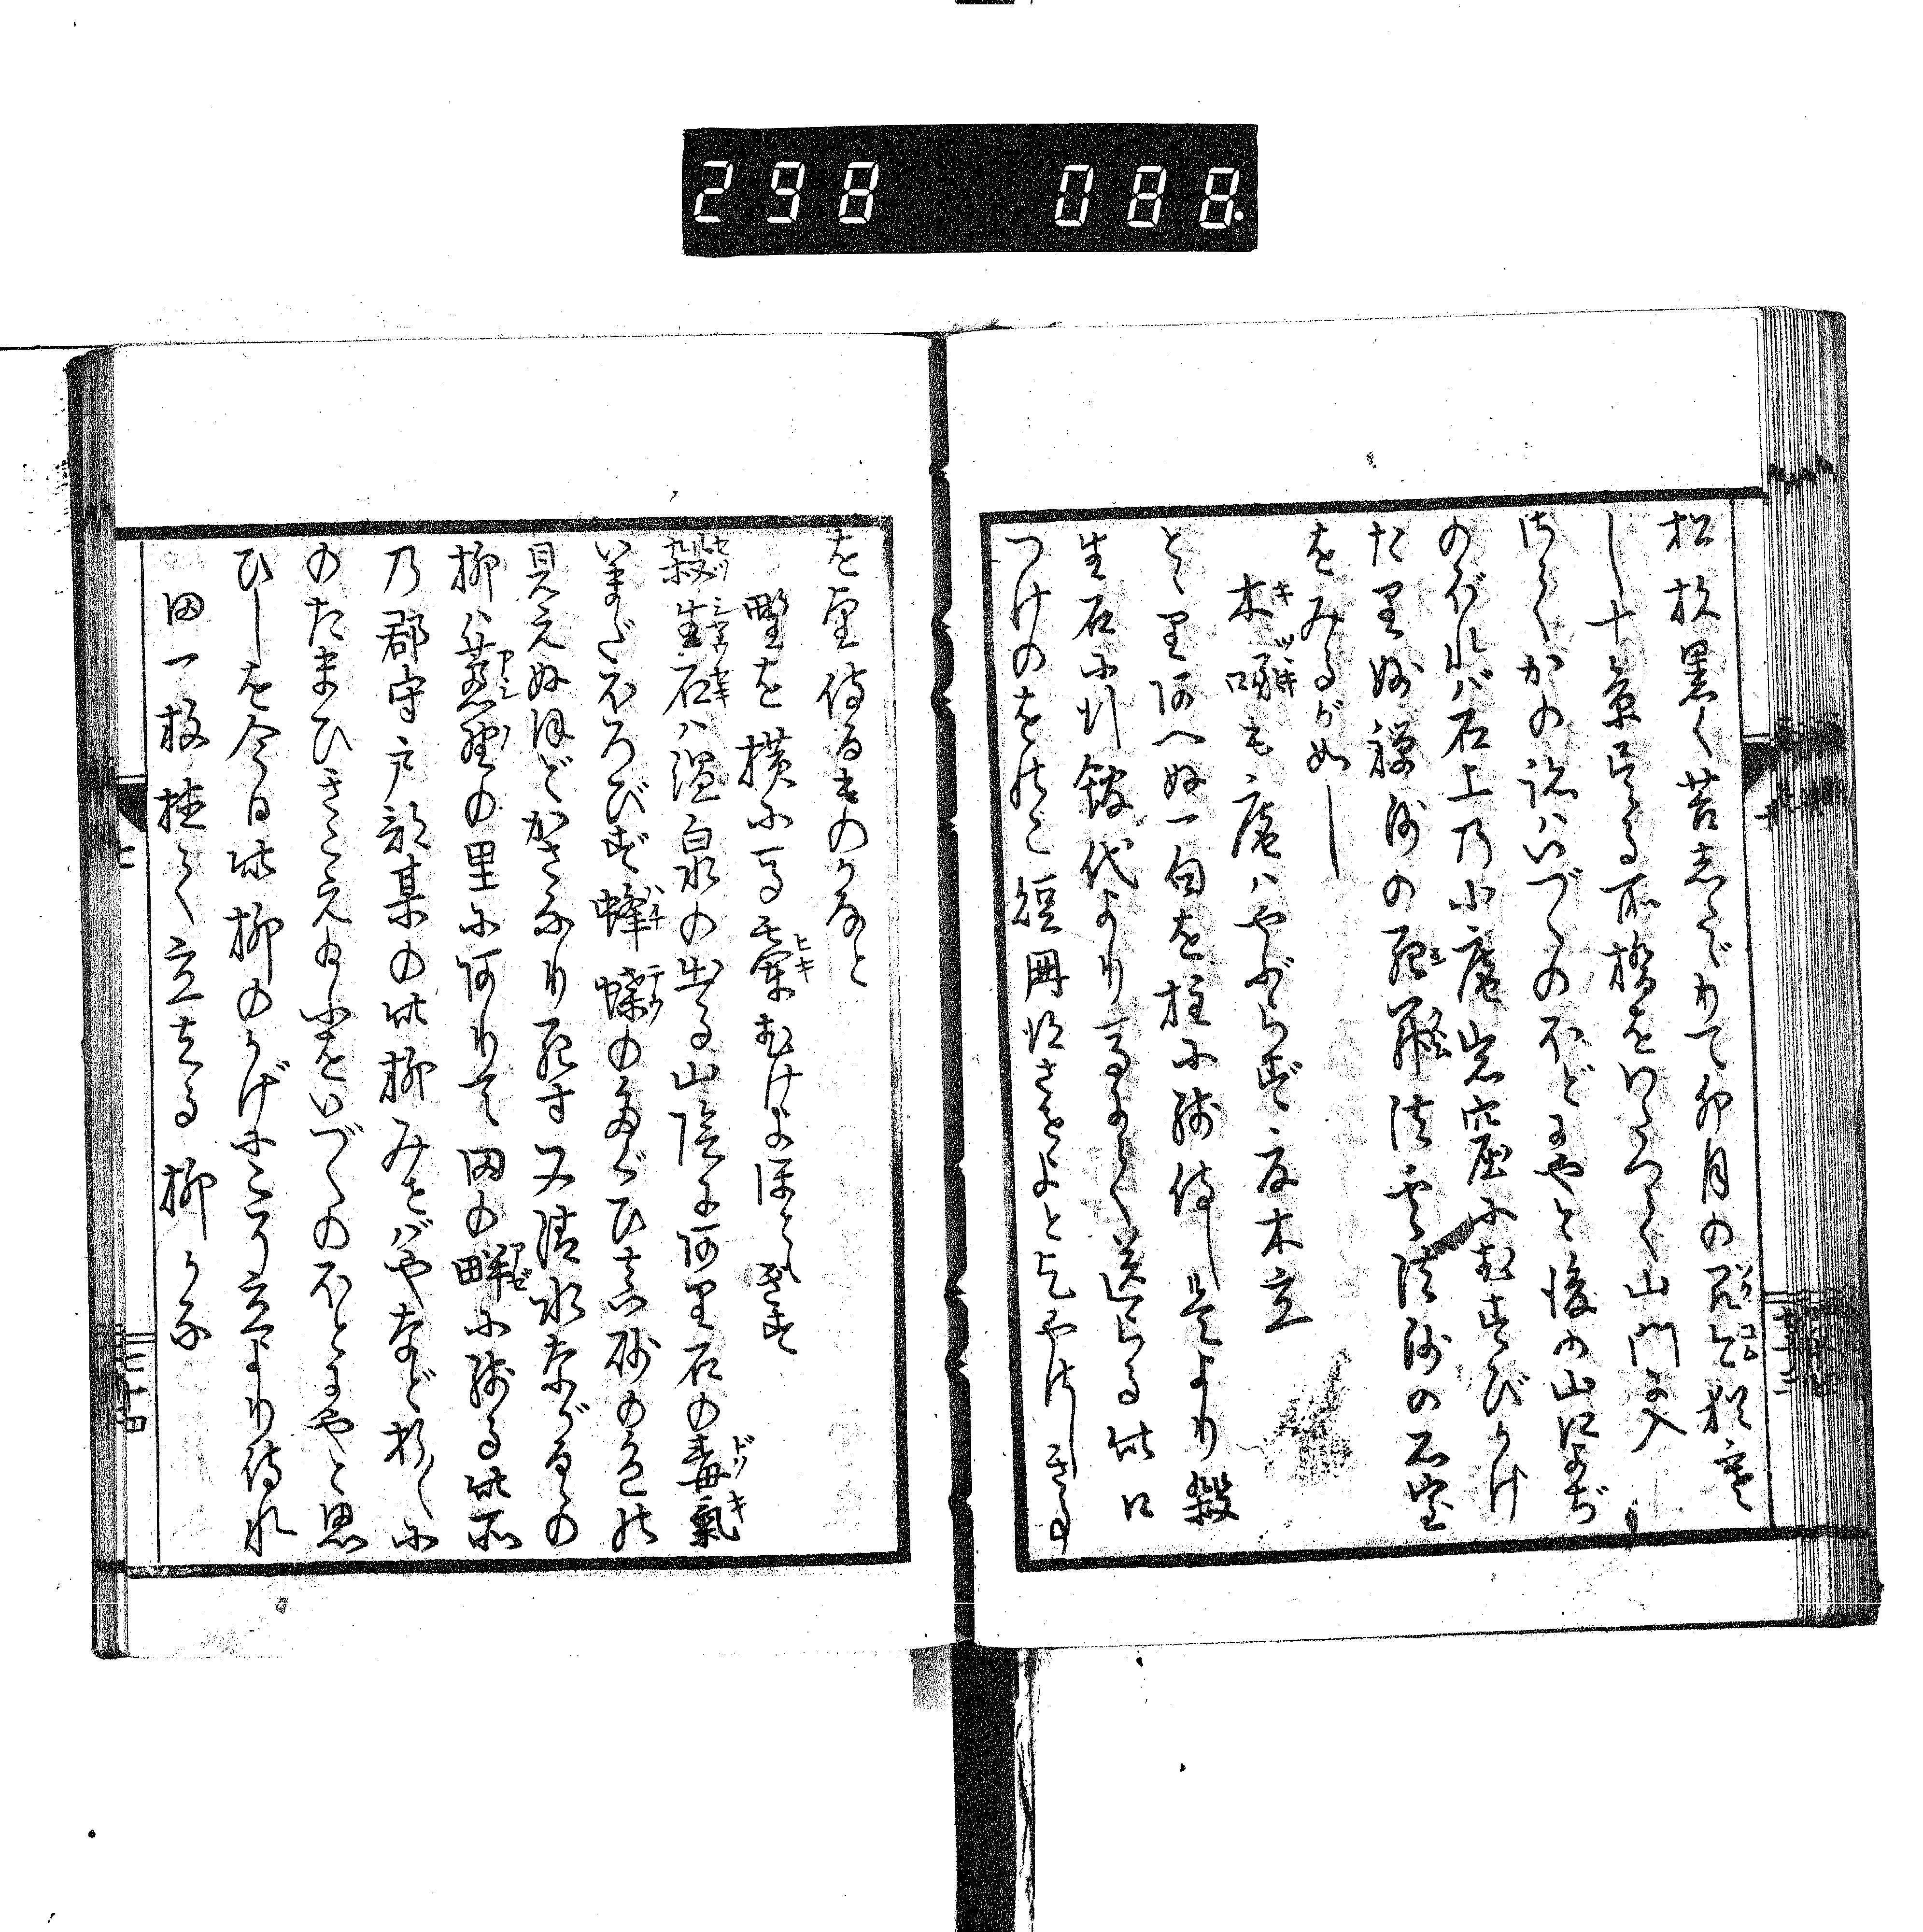 298 088.
松杉黒く苔志たゞりて卯月の天今猶寒
し十景尽る所橋をわたつて山門に入
さてかの跡ハいづくのほどにやと後の山によぢ
のぼれバ石上乃小庵岩窟にむすびかけ
たり妙禅師の死關法雲法師の石室
をみるが如し
木啄も庵ハやぶらず夏木立
とゝりあへぬ一句を柱に残侍し是より殺
生石に行館代より馬にて送らる此口
つけのをのこ短冊得させよと乞やさしき事
を望侍るものかなと
野を横に馬牽むけよほとゝぎす
殺生石ハ温泉の出る山陰にあり石の毒氣
いまだほろびず蜂蝶のたぐひ真砂の色の
見えぬほどかさなり死す又清水ながるゝの
柳ハ蘆野の里にありて田の畔に残る此所
乃郡守戸部某の此柳みせバやなど折〻に
のたまひきこえ給ふをいづくのほどにやと思
ひしを今日此柳のかげにこそ立より侍れ
田一枚植て立去る柳かな
三十四